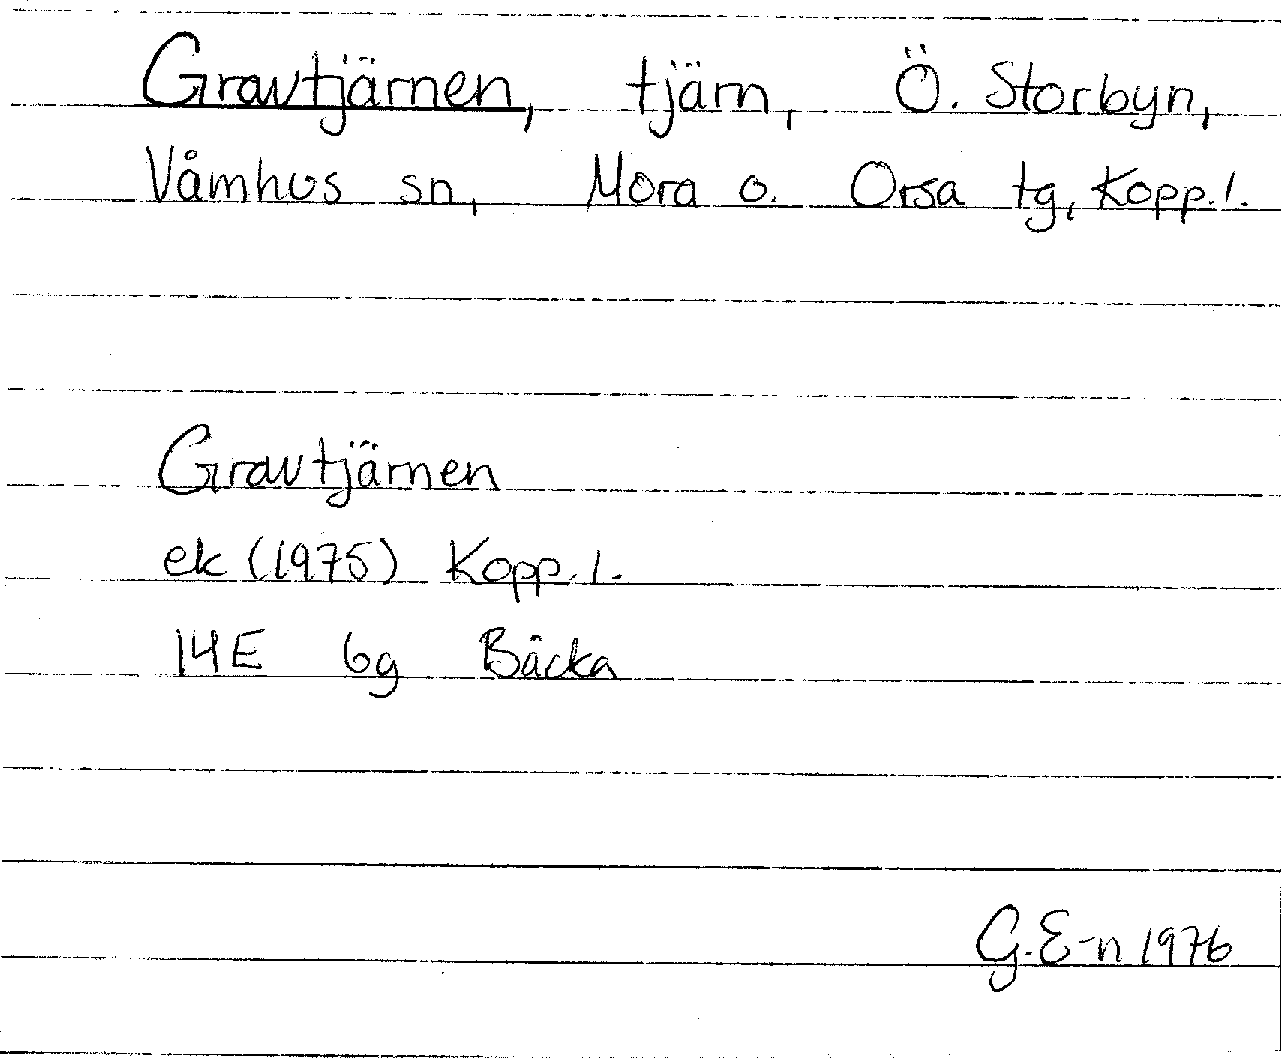 Gravtjärnen, tjärn, Ö. Storbyn,
Våmhus sn, Mora o. Orsa tg, Kopp. l.
Gravtjärnen
ek (1975) Kopp. l.
14E 6g Bäcka
G. E-n 1976